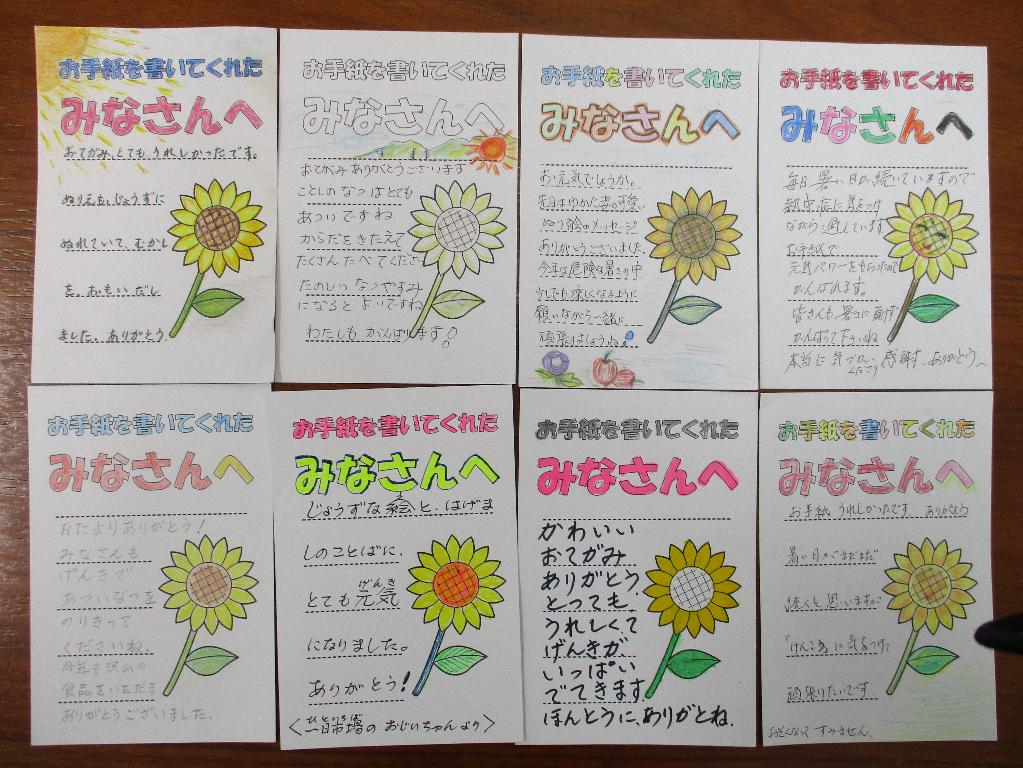 お手紙を書いてくれた
みなさんへ
おてがみ、とてもうれしかったです。
ぬりえも、じょうずに
ぬれていて、むかし
を、おもいだし
ました。ありがとう
お手紙を書いてくれた
みなさんへ
おてがみありがとうございます
ことしのなつはとても
あついですね
からだをきたえて
たくさんたべてください
たのしいなつやすみ
になるとよいですね
わたしもがんばります!
お手紙を書いてくれた
みなさんへ
お元気でしょうか。
先日はゆかた姿の可愛い
ぬり絵のメッセージ
ありがとうございました
今年は危険な暑さの中
少しでも涼しくなるように
願いながら一緒に
頑張りましょうね!
お手紙を書いてくれた
みなさんへ
毎日暑い日が続いていますので
熱中症に気をつけ
ながら過しています
お手紙で
元気パワーをもらったので
がんばれます。
皆さんも暑さに負けず
がんばって下さいね
本当に 感謝す、ありがとう〜
お手紙を書いてくれた
みなさんへ
おたよりありがとう!
みなさんも
げんきで
あついなつを
のりきって
くださいね。
今年も沢山の
食品をいただき
ありがとうございました。
お手紙を書いてくれた
みなさんへ
じょうずな絵と、はげま
しのことばに、
とても元気
げんき
になりました。
ありがとう!
<一日市場のおじいちゃんより>
ひといちば
お手紙を書いてくれた
みなさんへ
かわいい
おてがみ
ありがとう、
とっても、
うれしくて
げんきが
いっぱい
でてきます
ほんとうに、ありがとね。
お手紙を書いてくれた
みなさんへ
お手紙うれしかったです ありがとう
暑い日がまだまだ
続くと思いますが
「けんこう」に気をつけて
頑張りたいです
おそくなってすみません。